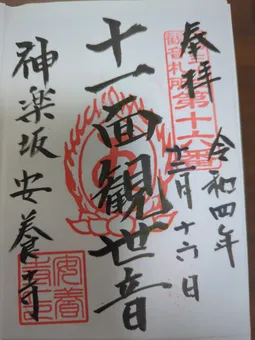 奉拝
第十六番
観音札所
令和四年
十二月十六日
十一面観世音
神楽坂 安養寺
安養